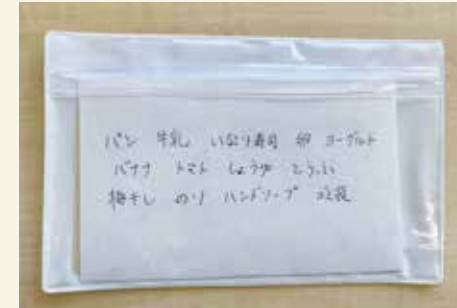 パン 牛乳 いなり寿司 卵 ヨーグルト
バナナ トマト しょうゆ とうふ
梅干し のり ハンドソープ